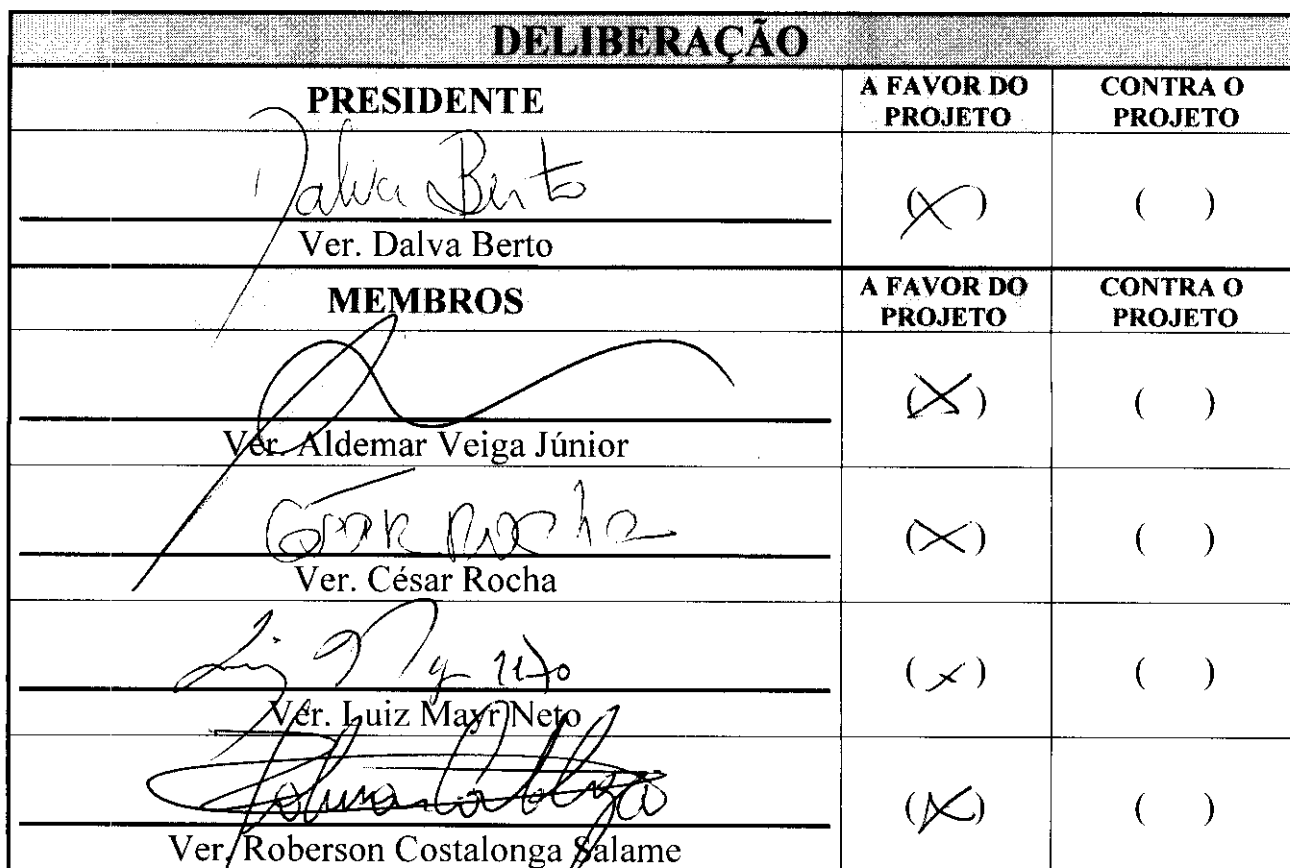 DELIBERAÇÃO
PRESIDENTE A FAVOR DO PROJETO CONTRA O PROJETO
Dalva Berto (X) ( )
Ver. Dalva Berto
MEMBROS A FAVOR DO PROJETO CONTRA O PROJETO
(X) ( )
Ver. Aldemar Veiga Júnior
César Rocha (X) ( )
Ver. César Rocha
Luiz Mayr Neto (X) ( )
Ver. Luiz Mayr Neto
(X) ( )
Ver. Roberson Costalonga Salame